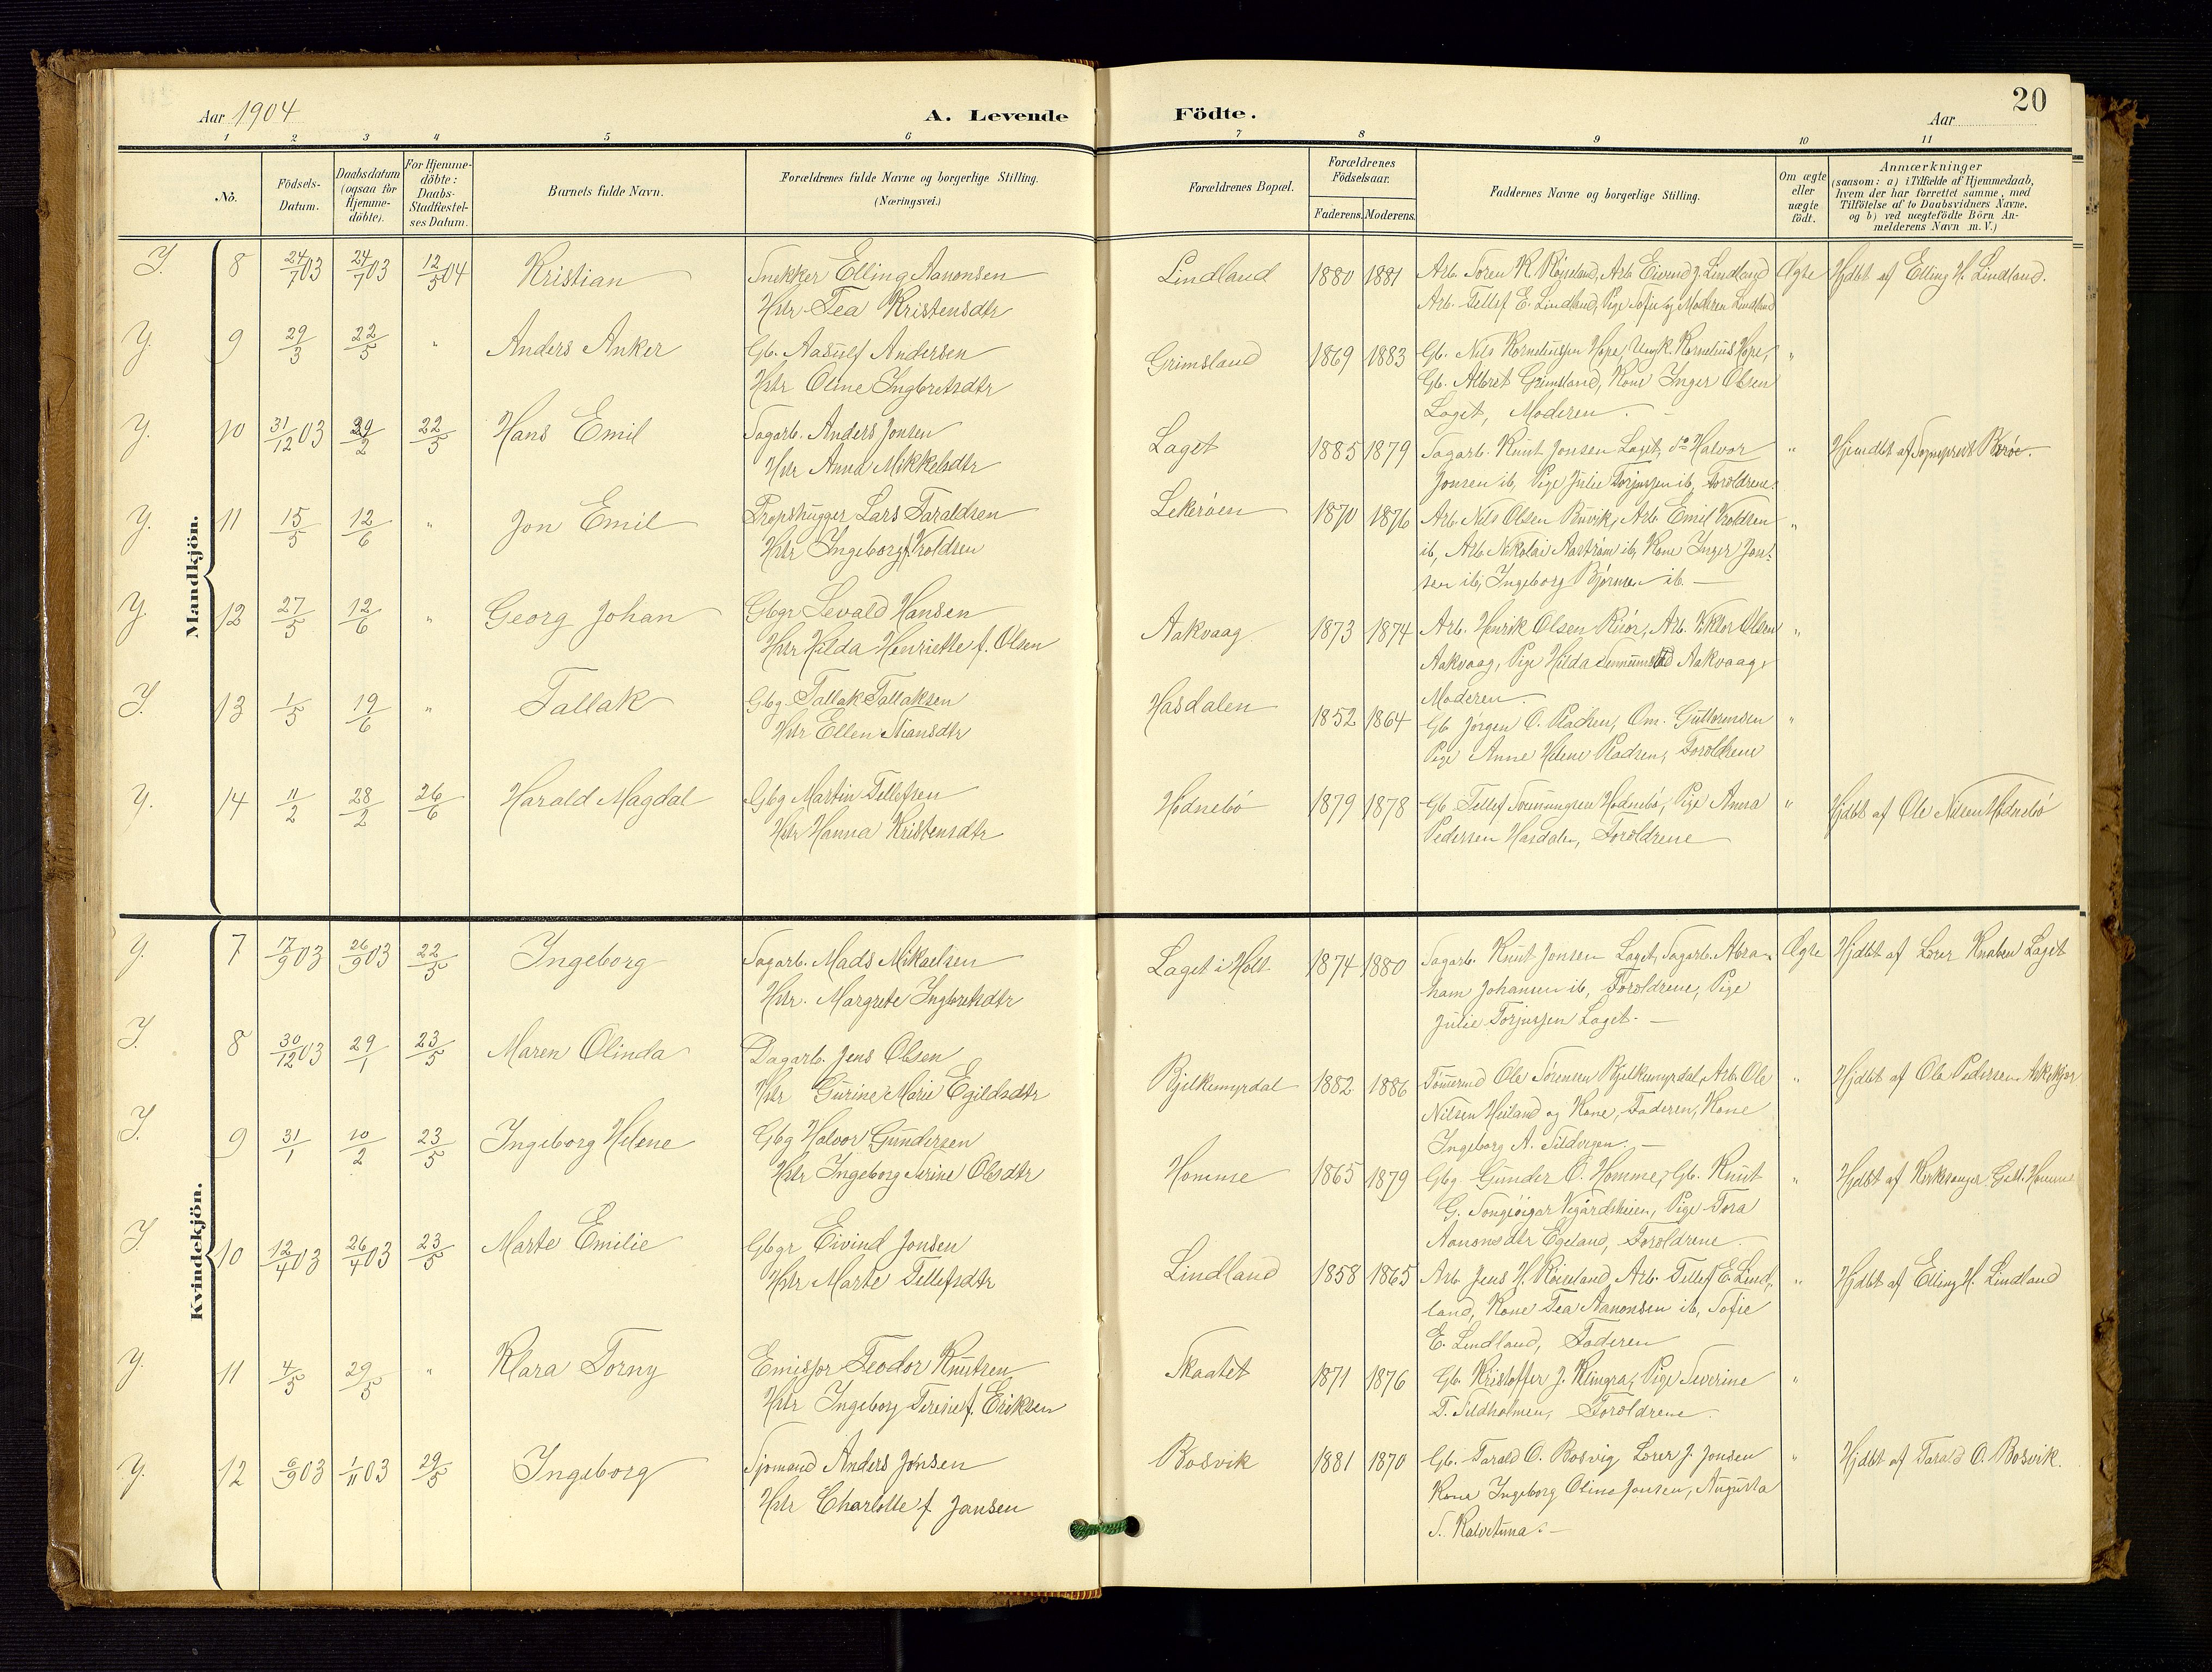 20
Aar 1904
A. Levende Födte.
Aar
1 2 3 4 5 6 7 8 9 10 11
No.
Födsels-Datum.
Daabsdatum (ogsaa for Hjemme-döbte).
For Hjemme-döbte: Daabs-Stadfæstel-ses Datum.
Barnets fulde Navn.
Forældrenes fulde Navne og borgerlige Stilling.
(Næringsvei.)
Forældrenes Bopæl.
Forældrenes Födselsaar.
Faderens. Moderens.
Faddernes Navne og borgerlige Stilling.
Om ægte eller uægte födt.
Anmærkninger
(saasom: a) i Tilfælde af Hjemmedaab, hvem der har forrettet samme, med Tilföielse af to Daabsvidners Navne, og b) ved uægtefödte Börn An-melderens Navn m. V.)
Mandkjön.
8 24/7 03 24/7 03 12/5 04 Kristian Snekker Elling Aanonsen Lindland 1880 1881 Arb. Søren K. Røiseland, Arb. Eivind J. Lindland Ægte Hjdbt af Elling H. Lindland.
Hstr Tea Kristensdtr Arb. Tellef E. Lindland, Pige Sofie og Moderen Lindland
Y. 9 29/3 22/5 " Anders Anker Gb. Aasulf Andersen Grimsland 1869 1883 Gb. Nils Korneliussen Hope, Ungk. Kornelius Hope, "
Hstr Oline Ingbretsdtr Gb. Albret Grimsland, Kone Inger Olsen
Laget, Moderen.
Y. 10 31/12 03 29/2 22/5 Hans Emil Sagarb. Anders Jonsen Laget 1885 1879 Sagarb. Knut Jonsen Laget, do Halvor " Hjemdbt af Sogneprest
Hstr Anna Mikkelsdtr Jonsen ib, Pige Julie Torjussen ib, Foroldrene.
Y. 11 15/5 12/6 " Jon Emil Propshugger Lars Taraldsen Lekerøen 1870 1876 Arb. Nils Olsen Buvik, Arb. Emil Kroldsen "
Hstr Ingeborg f. Kroldsen ib, Arb. Nikolai Aastrøm ib, Kone Inger Jon-
sen ib, Ingeborg Bjørnsen ib. —
Y. 12 27/5 12/6 " Georg Johan Gbgr Sevald Hansen Aakvaag 1873 1874 Arb. Henrik Olsen Risør, Arb. Viktor Olsen "
Hstr Hilda Henriette f. Olsen Aakvaag, Pige Hilda Aakvaag,
Moderen.
13 1/5 19/6 " Tallak Gbg. Tallak Tallaksen Hasdalen 1852 1864 Gb Jørgen O. Om. Guttormsen "
Hstr Ellen Niansdtr Pige Anne Helene Foroldrene
Y. 14 11/2 28/2 26/6 Harald Magdal Gbg Martin Tellefsen Hødnebø 1879 1878 Gb. Tellef Hødnebø, Pige Anna " Hjdbt af Ole Nilsen Hødnebø
Hstr Hanna Kristensdtr Pedersen Hasdalen, Foroldrene
Kvindekjön.
Y. 7 17/9 03 26/9 03 22/5 Ingeborg Sagarb. Mads Mikaelsen Laget i Holt 1874 1880 Sagarb. Knut Jonsen Laget, Sagarb. Abra- Ægte Hjdbt af Lærer Knaben Laget
Hstr. Margrete Ingbretsdtr ham Johansen ib, Foroldrene, Pige
Julie Torjussen Laget. —
8 30/12 03 29/1 23/5 Maren Olinda Dagarb. Jens Olsen Bjelkemyrdal 1882 1886 Tømmermd Ole Sørensen Bjelkemyrdal, Arb. Ole " Hjdbt af Ole Pedersen
Hstr Gurine Marie Egildsdtr Nilsen Heiland og Kone, Faderen, Kone
Ingeborg A. Sildvigen. —
9 31/1 10/2 23/5 Ingeborg Helene Gbg Halvor Gundersen Homme 1865 1879 Gbg Gunder O. Homme, Gb. Knut " Hjdbt af Kirkesanger Homme
Hstr Ingeborg Serine Olsdtr G. Songeøigar Vegårdsheien, Pige Tora
Aanonsdtr Egeland, Foroldrene.
10 12/4 03 26/4 03 23/5 Marte Emilie Gbgr Eivind Jonsen Lindland 1858 1865 Arb Jens H. Røiseland, Arb. Tellef E. Lind- " Hjdbt af Elling H. Lindland
Hstr Marte Tellefsdtr land, Kone Tea Aanonsen ib, Sofie
E. Lindland, Faderen
Y. 11 4/5 29/5 " Klara Torny Emissær Teodor Knutsen Skaatet 1871 1876 Gb. Kristoffer J. Klingra, Pige Severine "
Hstr Ingeborg Teresie f. Eriksen T. Sildholmen, Foroldrene.
Y. 12 6/9 03 1/11 03 29/5 Ingeborg Sjømand Anders Jonsen Bosvik 1881 1870 Gb. Tarald O. Bosvig Lærer J. Jonsen " Hjdbt af Tarald O. Bosvik.
Hstr Charlotte f. Jansen Kone Ingeborg Oline Jonsen, Augusta
S. Kalvetuna. —